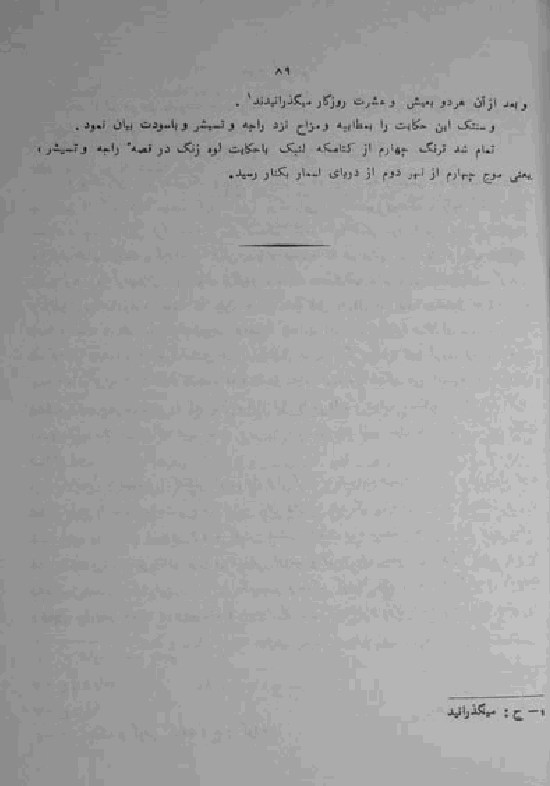 ۸۹
و بعد ازآن هر دو بعیش و عشرت روزگار میگذرانیدند۱ .
و سنتک این حکایت را بمطایبه و مزاح نزد راجه و تسیشر و باسودت بیان نمود .
تمام شد ترنگ چهارم از کتامکه لنبک باحکایت لود ژنگ در قصهٔ راجه و تسیشر ؛
یعنی موج چهارم از نهر دوم از دریای اسمار بکنار رسید.
۱— ج : میگذرانید